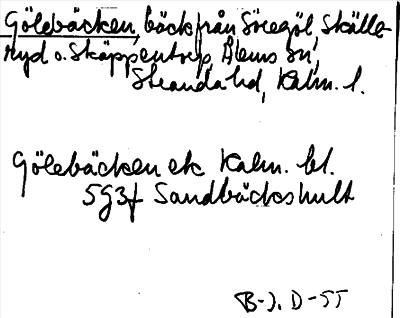 Gölebäcken, bäck från Söregöl, Skälle-
ryd o. Skäppentorp, Ålems sn,
Stranda hd, Kalm. l.
Gölebäcken ek Kalm. bl.
5g3f Sandbäckshult
B-J. D-55